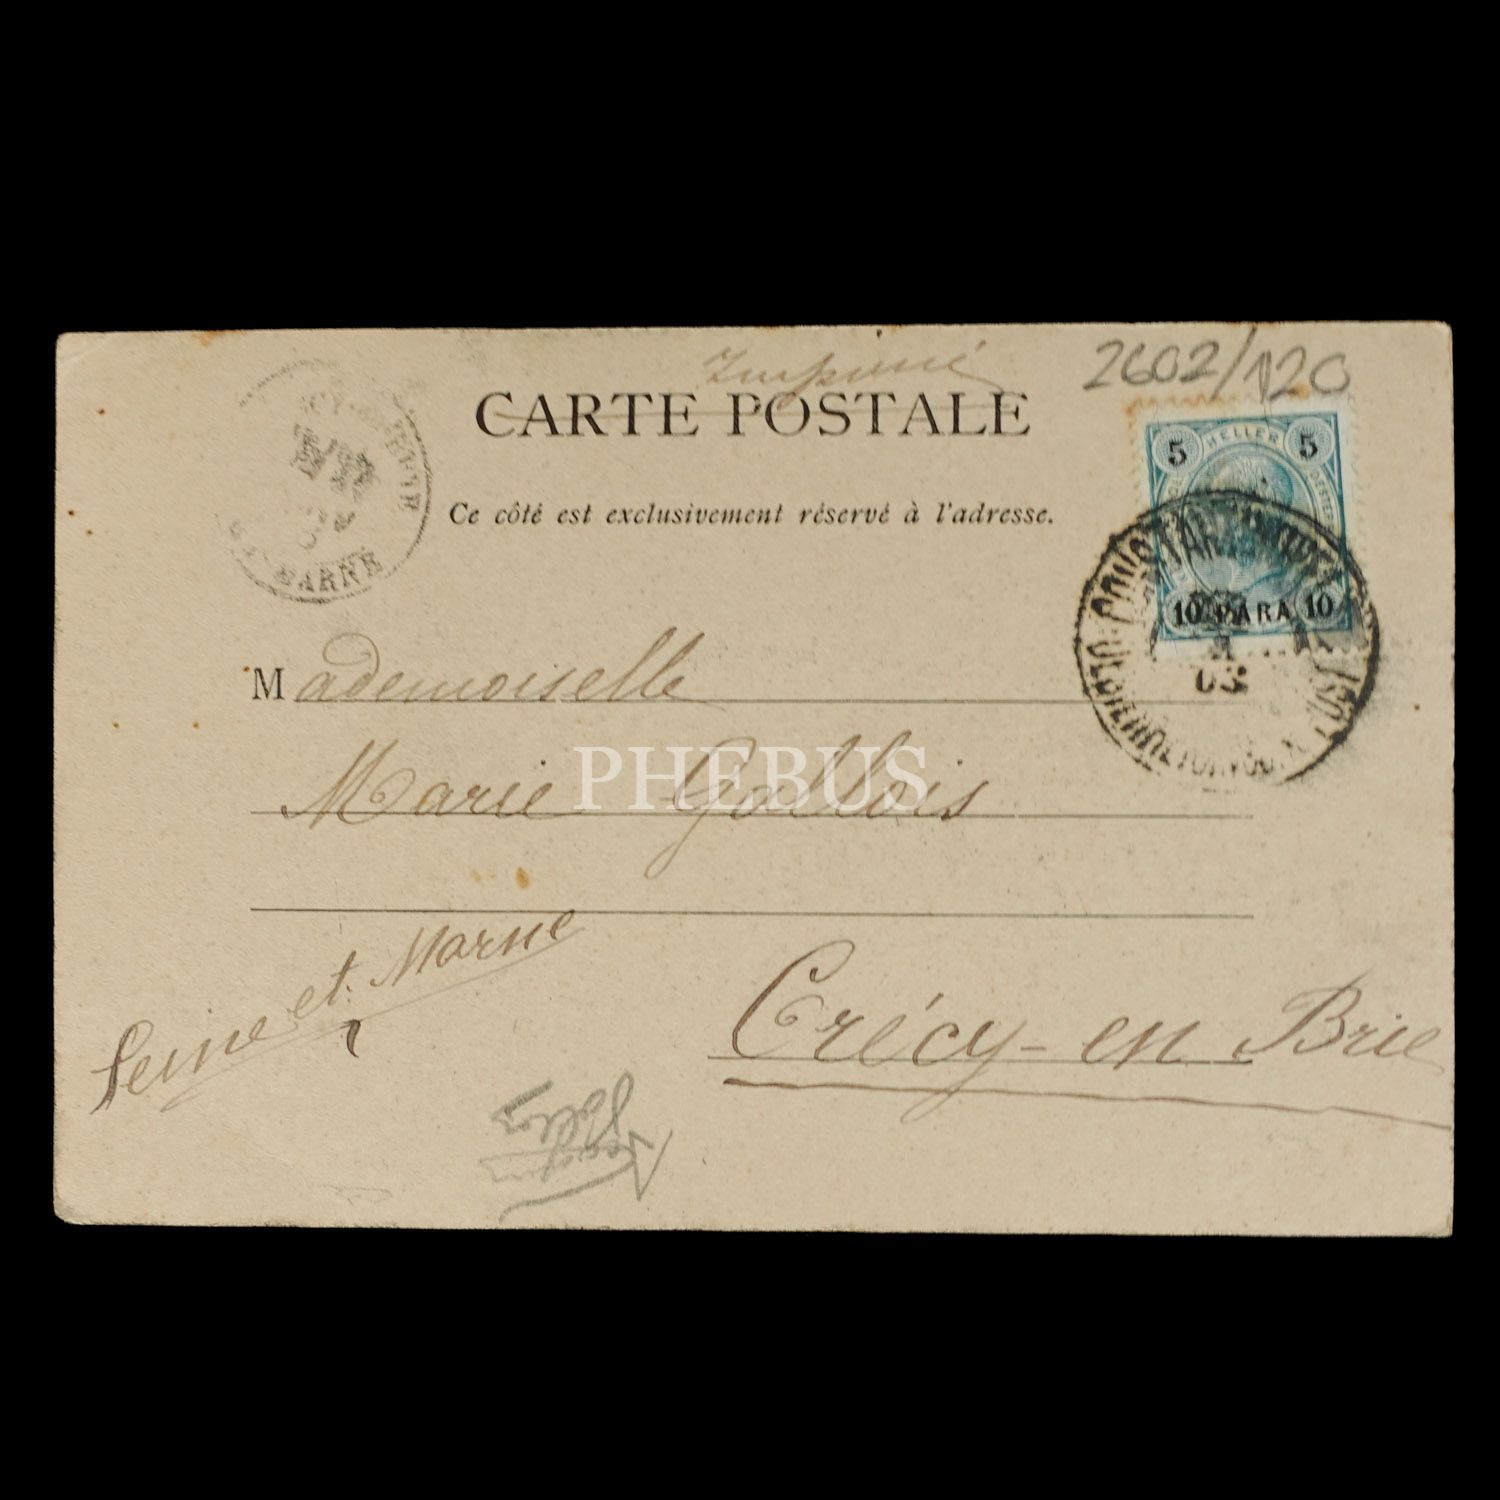 Imprimé
2602/120
CARTE POSTALE
5 HELLER 5
Ce côté est exclusivement réservé à l'adresse.
MARNE
10 PARA 10
03
Mademoiselle
PHEBUS
Marie Gallois
Seine et Marne
Crécy-en Brie